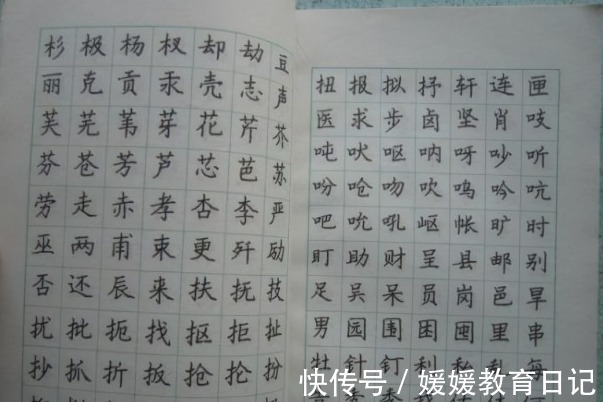 杉极杨杈却劫豆
丽克贡汞壳志声
芙芜苇芽花芹芥
芬苍芳芦芯芭苏
劳走赤孝杏李严
巫两甫束更歼励
否还辰来扶抚技
扰批扼找抠拒扯
抄抓折扳抢抡扮
扭报拟抒轩连匣
医求步卤坚肖吱
吨吠呕呐呀吵听
吩呛吻吹呜吟吭
吧吮吼岖帐旷时
盯助财呈县邮别
足吴呆员岗邑旱
男园围困囤里串
牡针钉利私乱每
快传号/媛媛教育日记